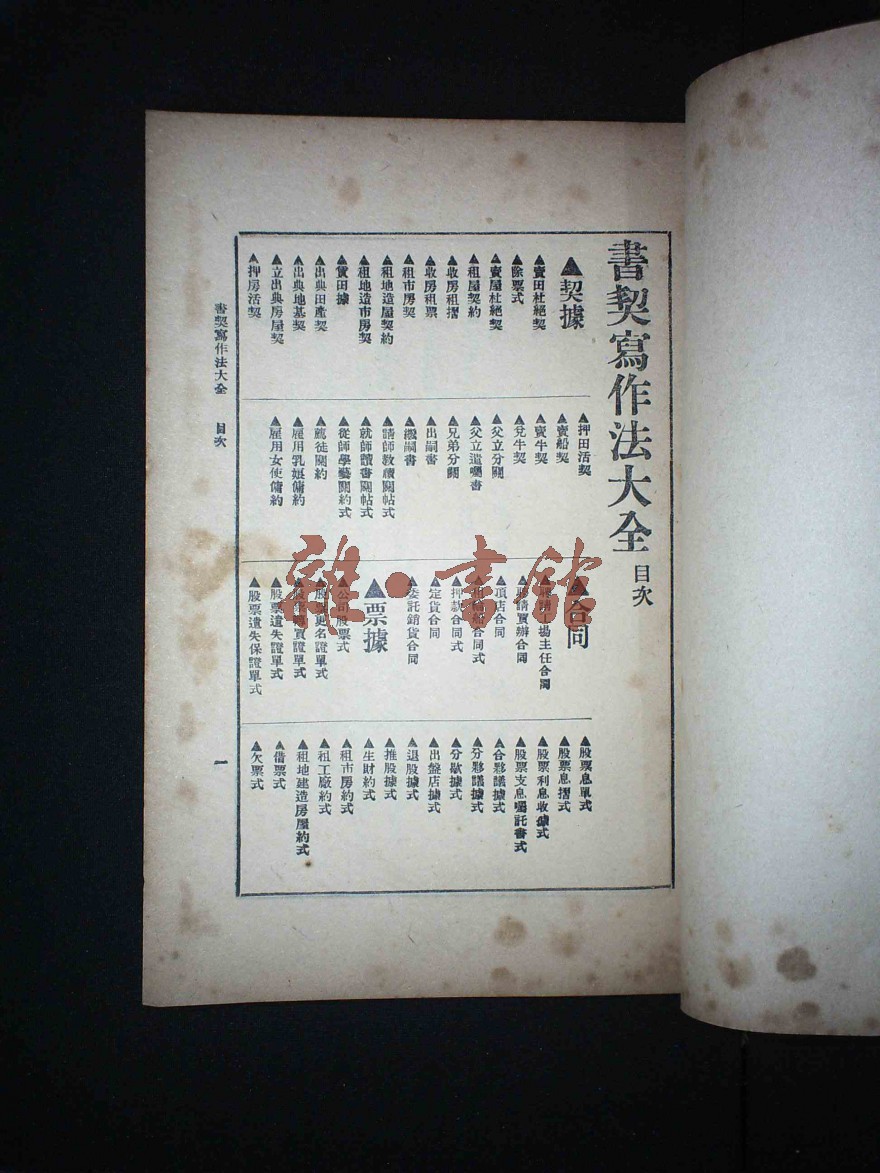 書契寫作法大全 目次
▲契據
▲賣田杜絕契
▲除票式
▲賣屋杜絕契
▲租屋契約
▲收房租摺
▲收房租票
▲租市房契
▲租地造屋契約
▲租地造市房契
▲賃田據
▲出典田產契
▲出典地基契
▲立出典房屋契
▲押房活契
▲押田活契
▲賣船契
▲賣牛契
▲兌牛契
▲父立分關
▲父立遺囑書
▲兄弟分關
▲出嗣書
▲繼嗣書
▲請師教讀關帖式
▲就師讀書關帖式
▲從師學藝關約式
▲薦徒關約
▲雇用乳媪傭約
▲雇用女使傭約
▲合同
主任合同
▲聘請買辦合同
▲項店合同
合同式
▲押款合同式
▲定貨合同
▲委託銷貨合同
▲票據
▲公司股票式
更名證單式
買證單式
▲股票遺失證單式
▲股票遺失保證單式
▲股票息單式
▲股票息摺式
▲股票利息收據式
▲股票支息囑託書式
▲合夥議據式
▲分夥議據式
▲分歇據式
▲出盤店據式
▲退股據式
▲推股據式
▲生財約式
▲租市房約式
▲租工廠約式
▲租地建造房屋約式
▲借票式
▲欠票式
書契寫作法大全 目次
一
雜·書館